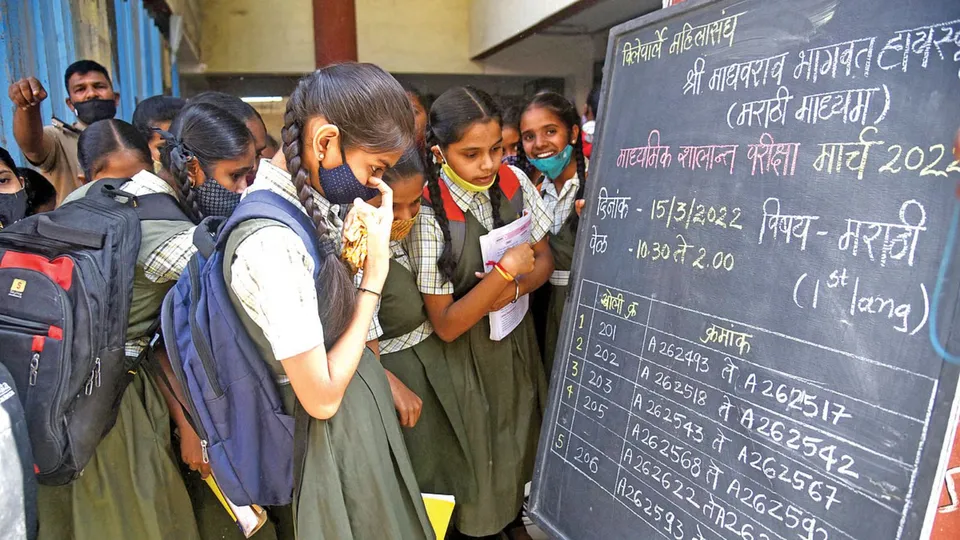 विलेपार्ले महिलासंघ
श्री माधवराव भागवत
(मराठी माध्यम)
माध्यमिक शालान्त परीक्षा मार्च 2022
दिनांक - 15/3/2022 विषय - मराठी
वेळ - 10.30 ते 2.00 (1st lang)
खोली क्र क्रमांक
1 201 A262493 ते A262517
2 202 A262518 ते A262542
3 203 A262543 ते A262567
4 205 A262568 ते A262592
5 206 A262622 ते
A262593 ते